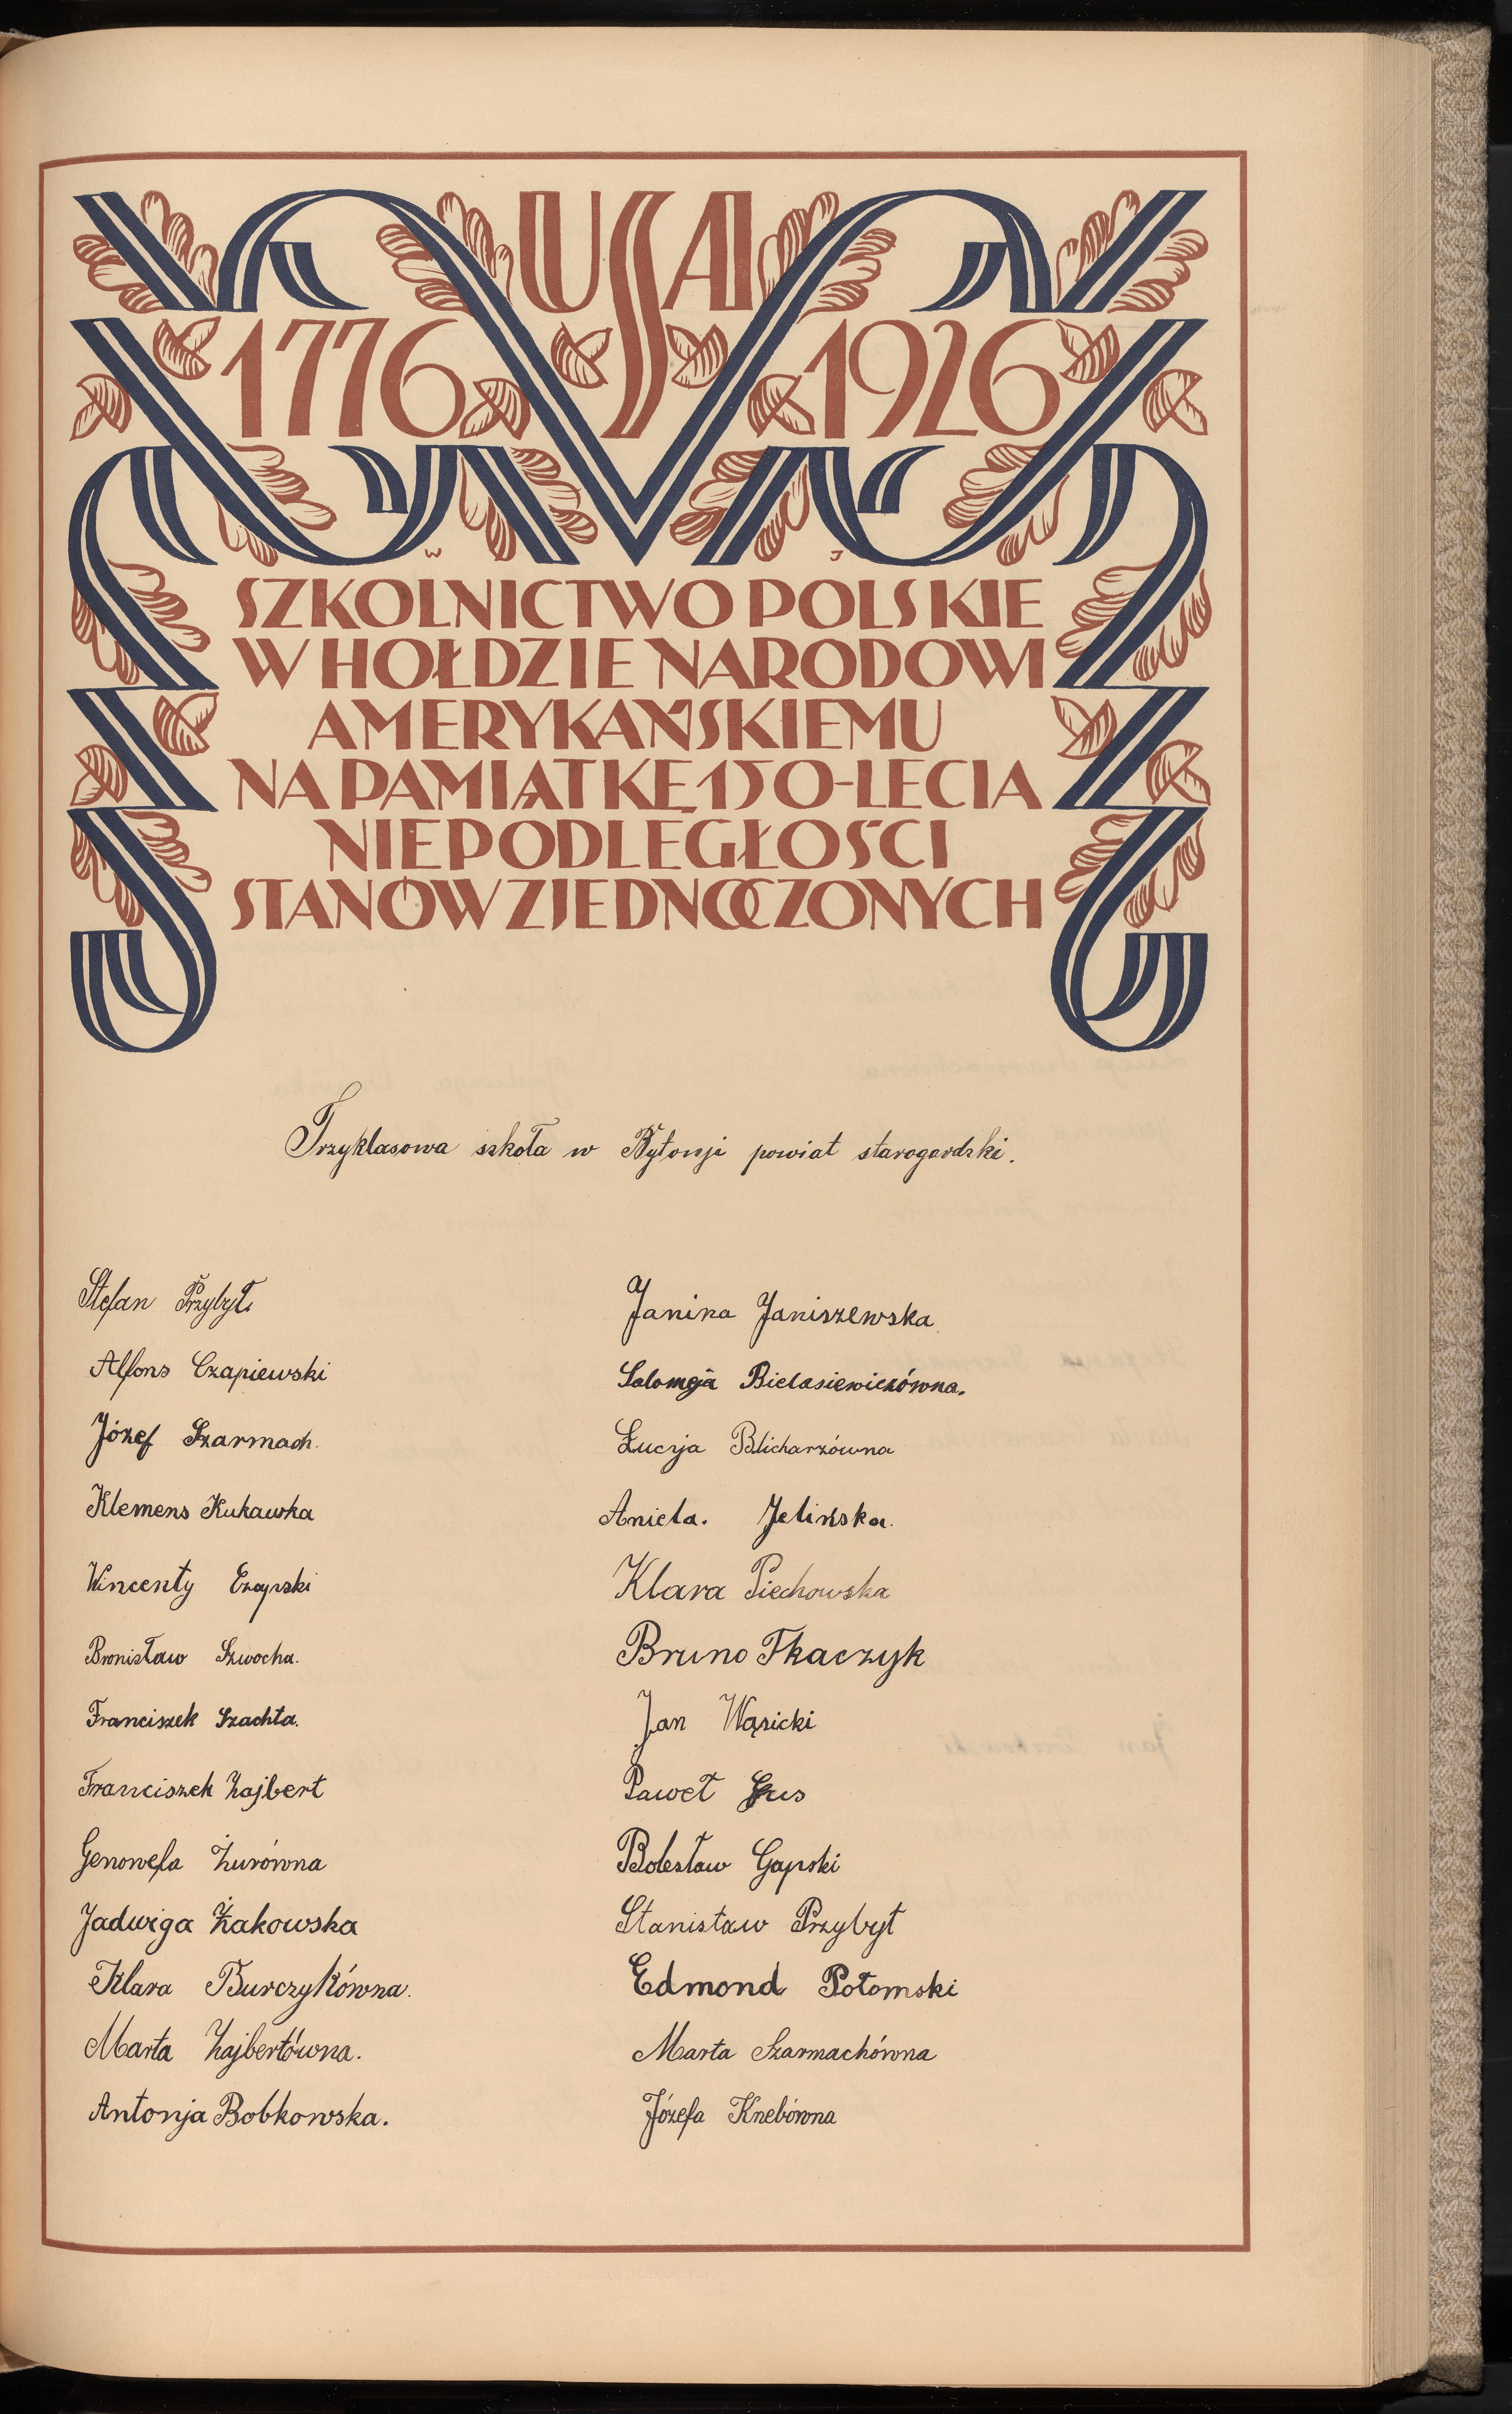 USA
1776 1926
W J
SZKOLNICTWO POLSKIE
W HOŁDZIE NARODOWI
AMERYKAŃSKIEMU
NA PAMIĄTKĘ 150-LECIA
NIEPODLEGŁOŚCI
STANÓW ZJEDNOCZONYCH
Trzyklasowa szkoła w Bytonji powiat starogardzki.
Stefan Przybył
Alfons Czapiewski
Józef Szarmach.
Klemens Kukawka
Wincenty Czapski
Bronisław Szwocha.
Franciszek Szachta.
Franciszek Zajbert
Genowefa Żurówna
Jadwiga Żakowska
Klara Burczykówna.
Marta Zajbertówna.
Antonja Bobkowska.
Janina Janiszewska
Salomeja Bielasiewiczówna.
Łucja Blicharzówna
Aniela. Jelińska.
Klara Piechowska
Bruno Tkaczyk
Jan Wąsicki
Paweł
Bolesław Gapski
Stanisław Przybył
Edmond Potomski
Marta Szarmachówna
Józefa Knebówna